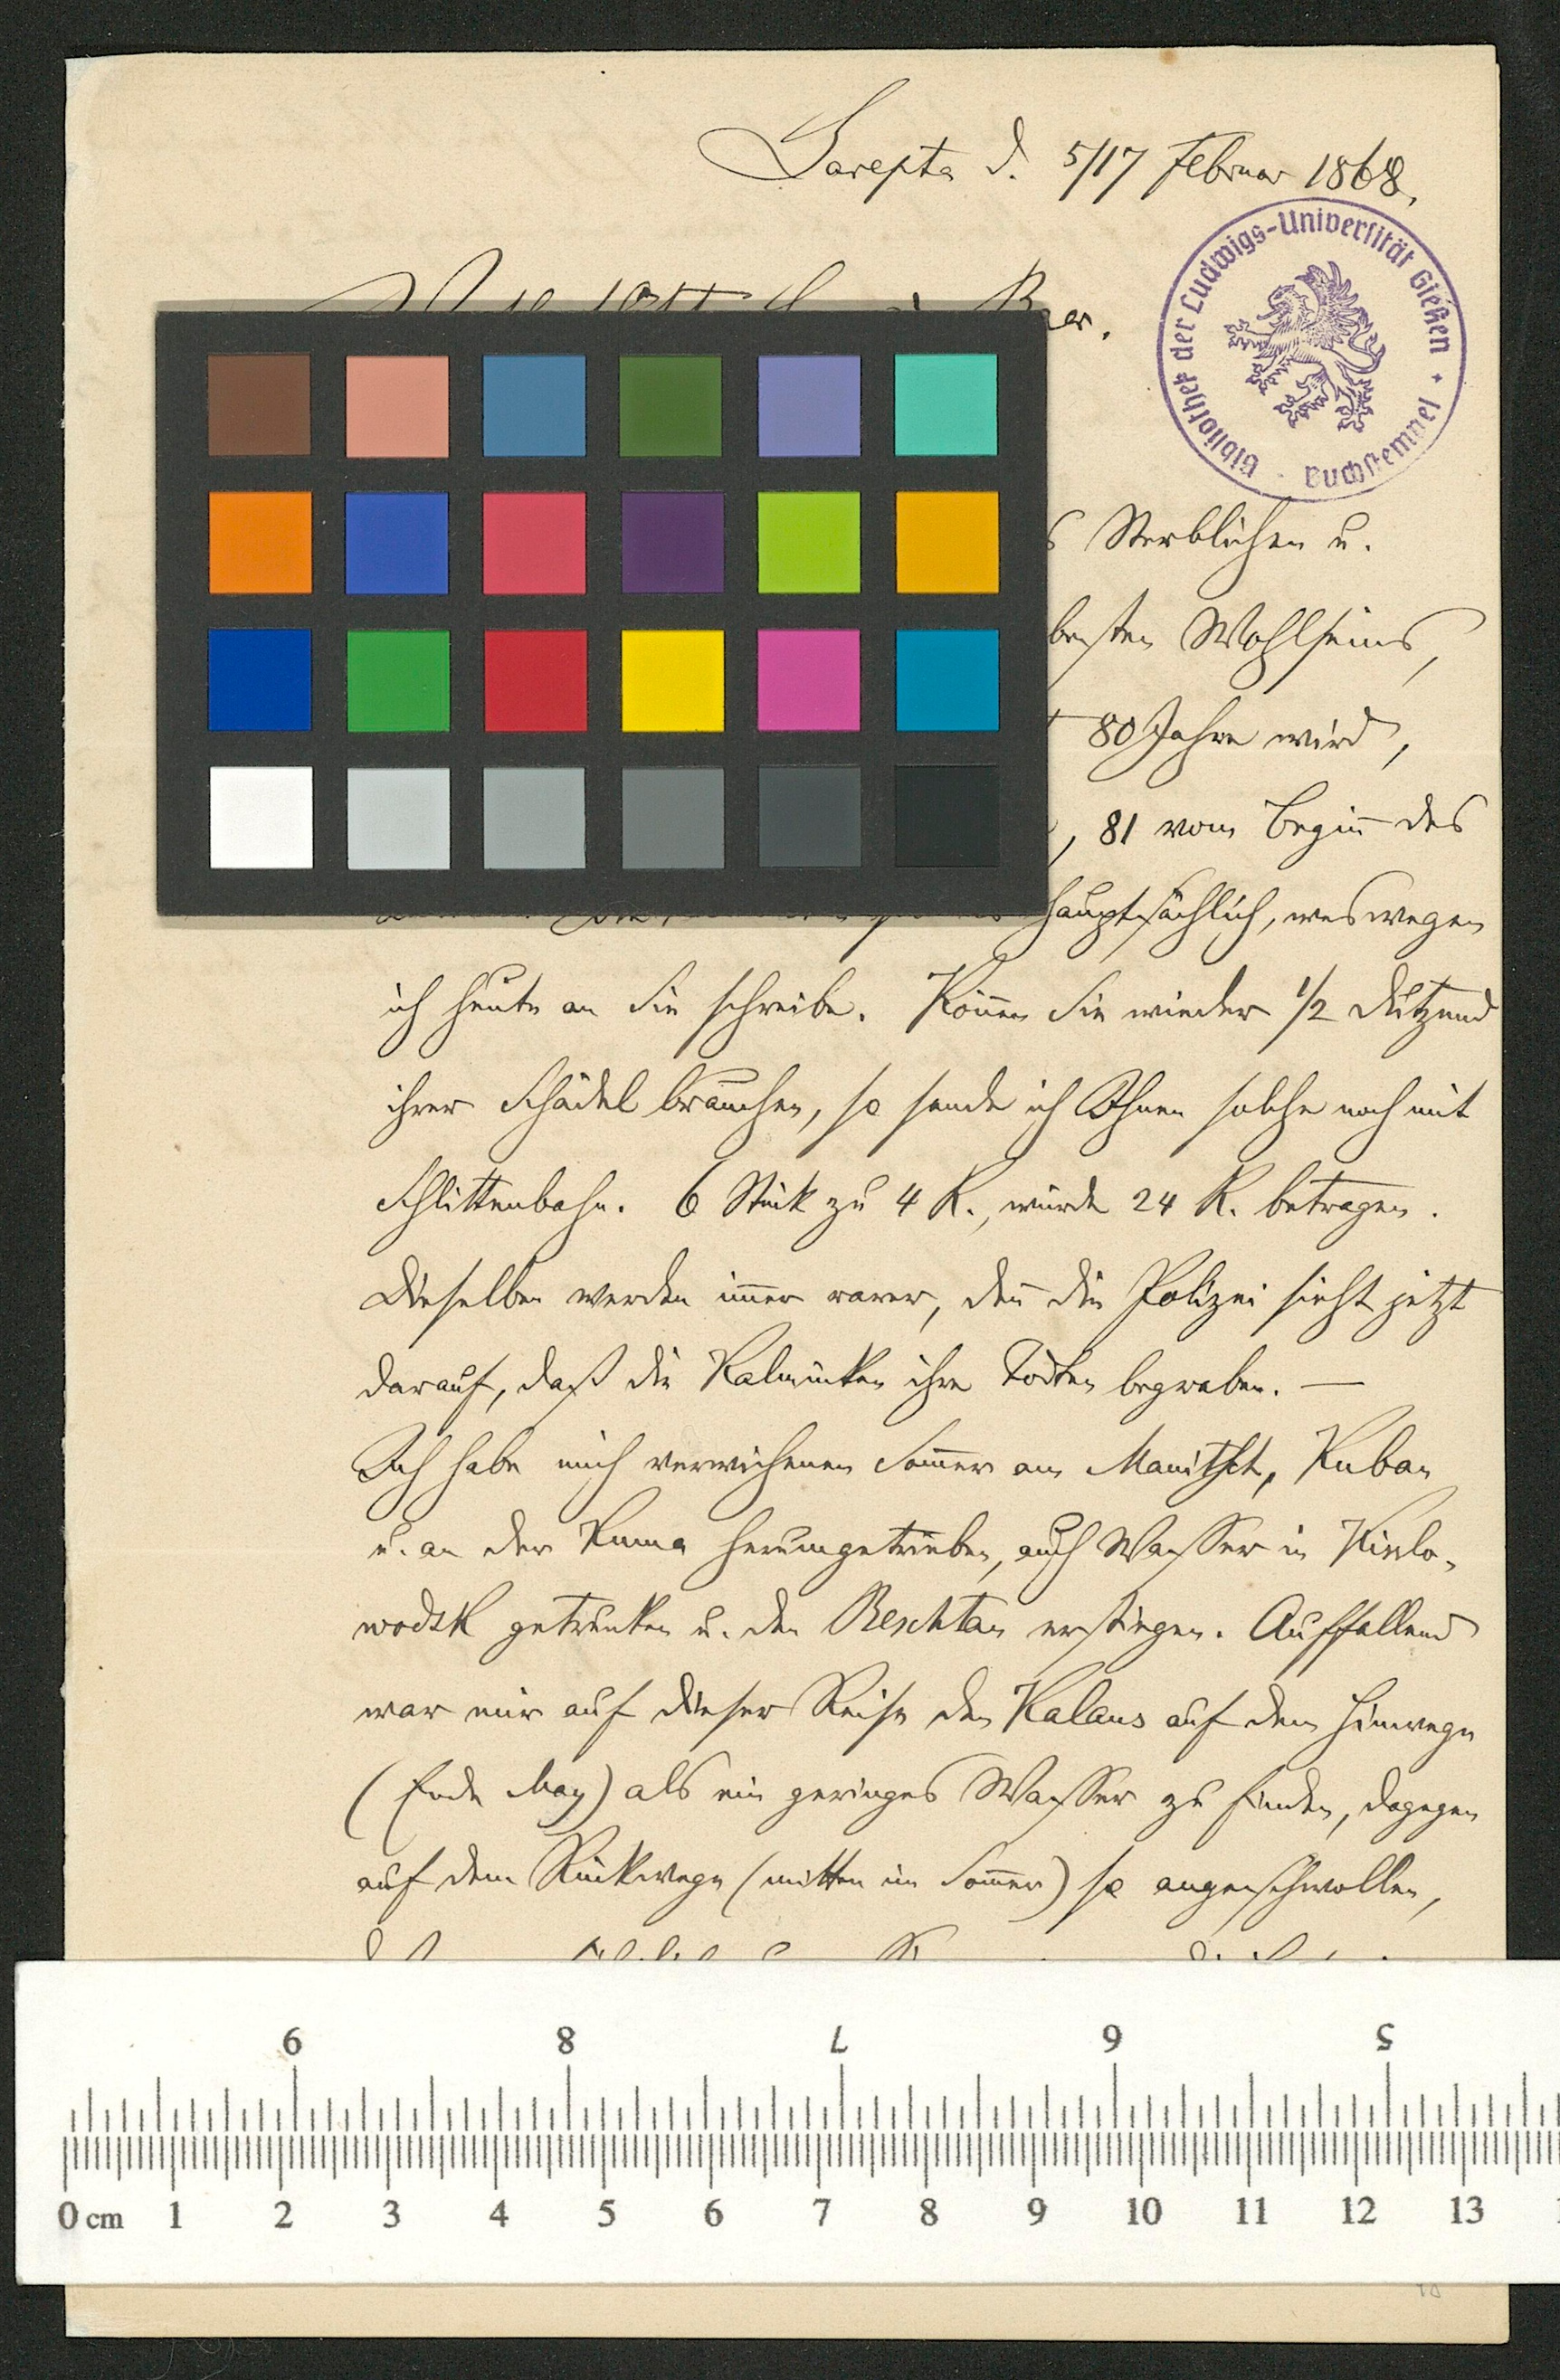 Sarepta d. 5/17 Februar 1868.
Bibliothek der Ludwigs-Universität Gießen
Buchstempel
Sterblichen u.
besten Wohlseins,
80 Jahre wird,
, 81 vom Begin̅ des
hauptsächlich, weswegen
ich heute an Sie schreibe. Kön̅en Sie wieder 1/2 Dutzend
ihrer Schädel brauchen, so sende ich Ihnen solche noch mit
Schlittenbahn. 6 Stück zu 4 R., würde 24 R. betragen.
Dieselben werden im̅er rarer, den̅ die Polizei sieht jetzt
darauf, daß die Kalmücken ihre Todten begraben. —
Ich habe mich verwichenen Som̅er am Manitsch, Kuban
u. an der Kuma herumgetrieben, auch Wasser in Kislo-
wodsk getrunken u. den Beschtau erstiegen. Auffallend
war mir auf dieser Reise den Kalaus auf dem Hinwege
(Ende May) als ein geringes Wasser zu finden, dagegen
auf dem Rückwege (mitten im Som̅er) so angeschwollen,
9 8 7 6 5
0 cm 1 2 3 4 5 6 7 8 9 10 11 12 13